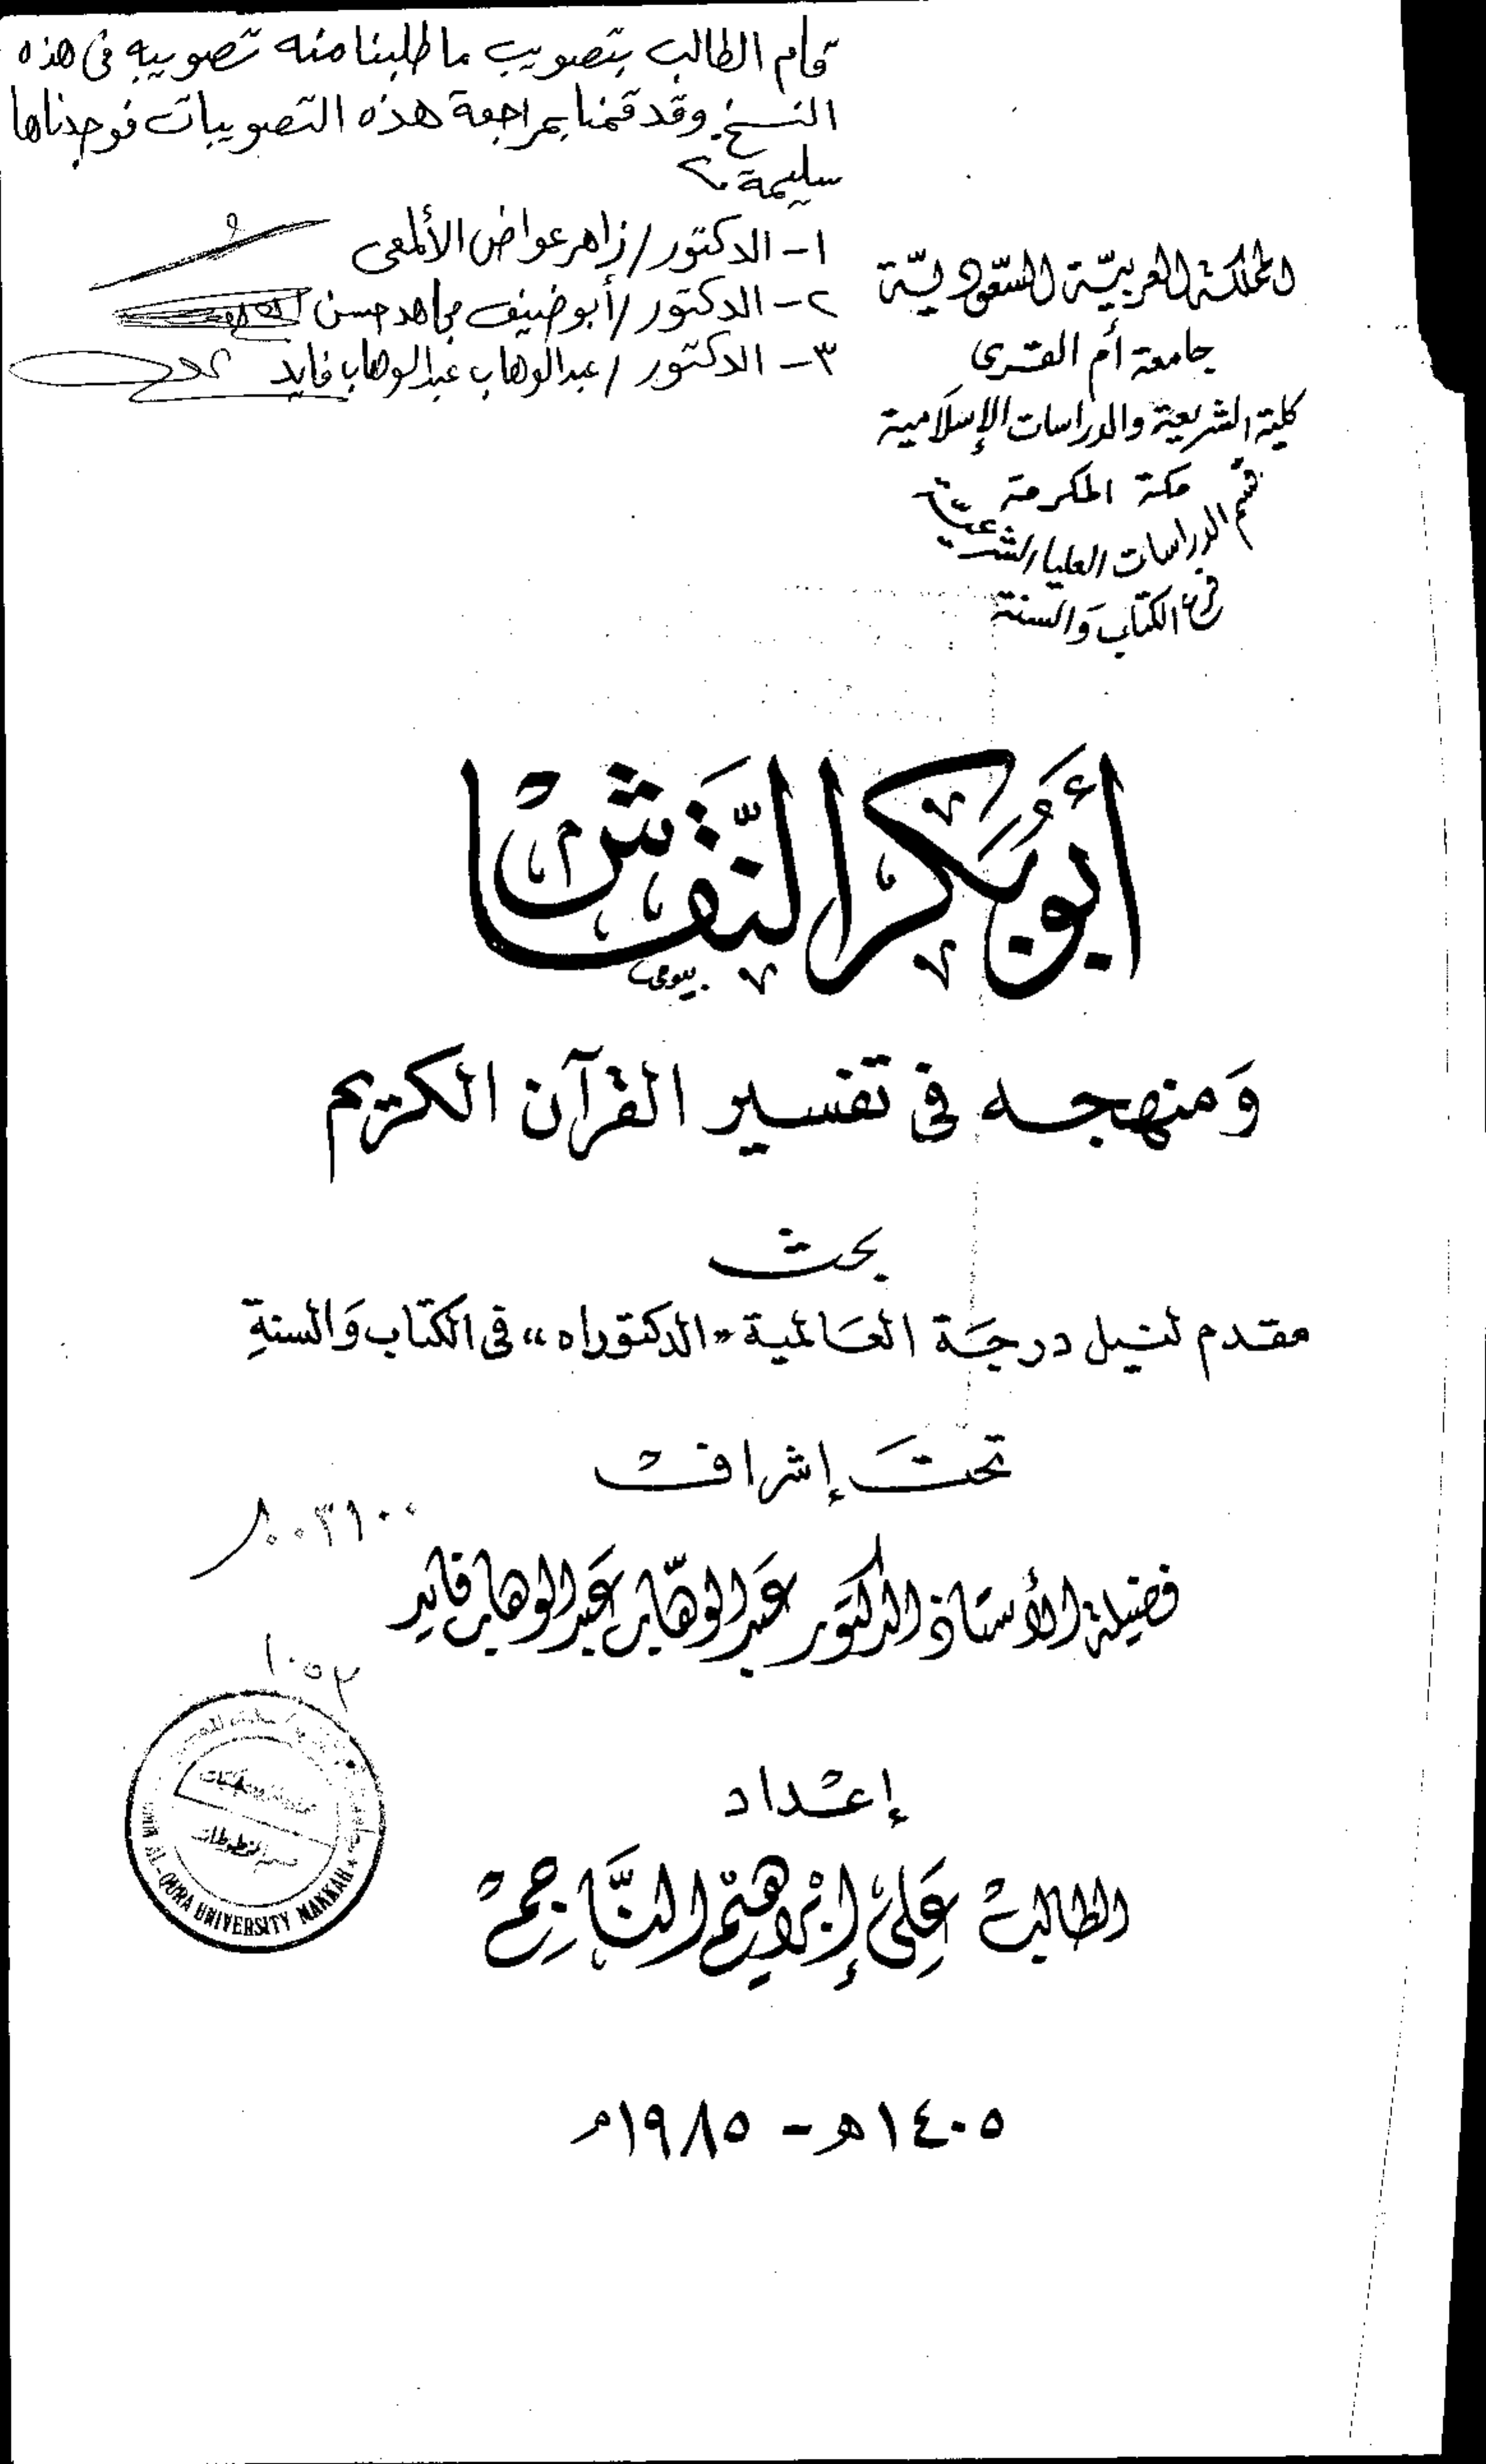 قام الطالب بتصويب ما طلبنا منه تصويبه فى هذه
النسخ وقد قمنا بمراجعة هذه التصويبات فوجدناها
سليمة
١- الدكتور / زاهر عواض الألمعى
٢- الدكتور / أبو ضيف مجاهد حسن
٣- الدكتور / عبدالوهاب عبدالوهاب فايد
المملكة العربيّة السّعوديّة
جامعة أم القرى
كلية الشريعة والدراسات الإسلامية
مكة المكرمة
قسم الدراسات العليا الشرعيّة
فرع الكتاب والسنة
أبُو بَكر النَّقاش
بيومى
وَمنهجه فى تفسير القرآن الكريم
بحث
مقدم لنيل درجَة العَالمية «الدكتوراه» فى الكتاب وَالسنةِ
تحتَ إشراف
٨٠٠٣١٠٠
فضيلة الأستاذ الدكتور عَبد الوهّاب عَبد الوهاب فايد
١٠٥٣
قسم المخطوطات
UMM AL-QURA UNIVERSITY MAKKAH
إعْداد
الطالب عَلى إبْراهيم النَّاجِم
١٤٠٥هـ - ١٩٨٥م